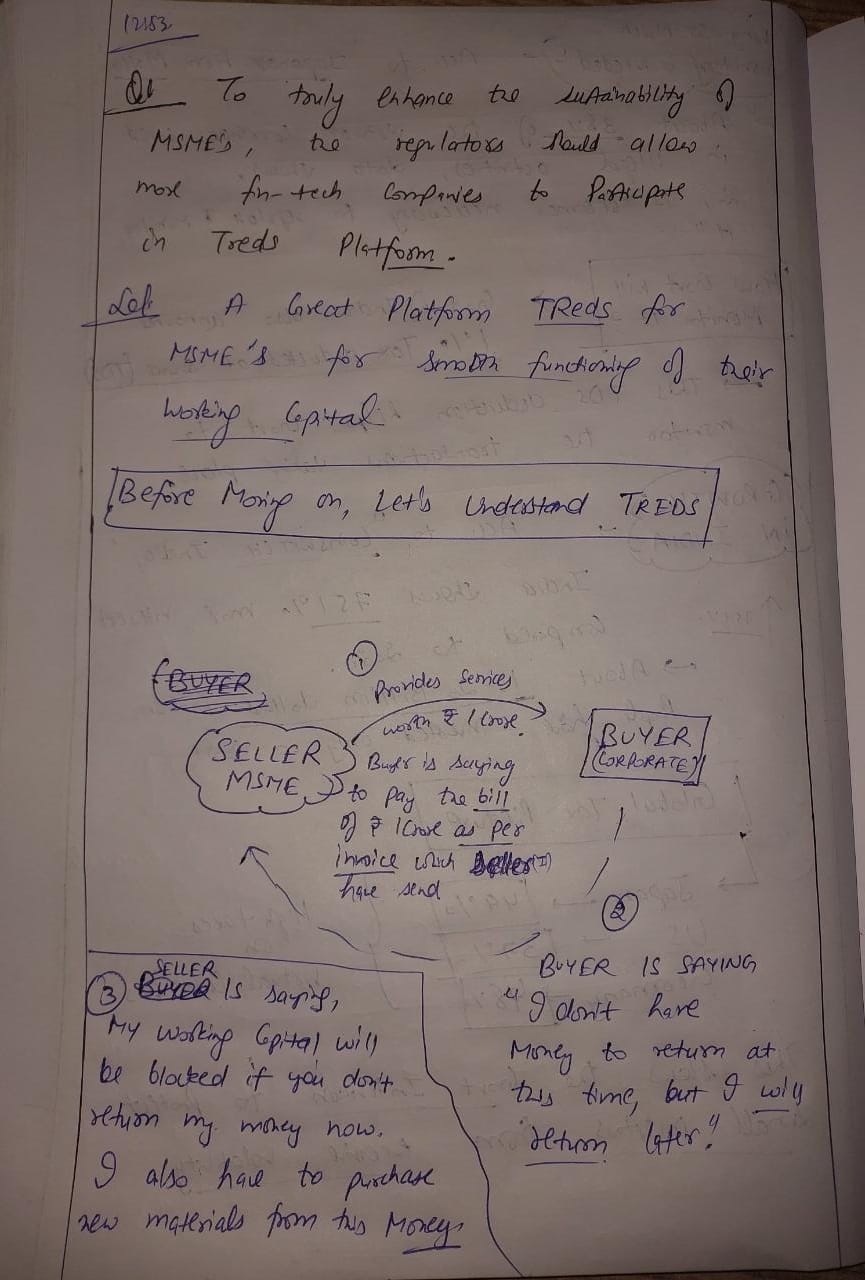 12153
Q1 To truly enhance the sustainability of
MSME's, the regulators should allow
more fin-tech Companies to Participate
in Treds Platform.
Sol: A Great Platform TReds for
MSME's for smooth functioning of their
working Capital
Before Moving on, Let's Understand TREDS
BUYER
1
Provides Services
worth ₹ 1 Crore.
SELLER
MSME
BUYER
(CORPORATE)
Buyer is saying
to pay the bill
of ₹ 1 Crore as per
invoice which Seller
have send
2
BUYER IS SAYING
"I don't have
Money to return at
this time, but I will
return later."
3 SELLER IS saying,
My working Capital will
be blocked if you don't
return my money now.
I also have to purchase
new materials from this Money.